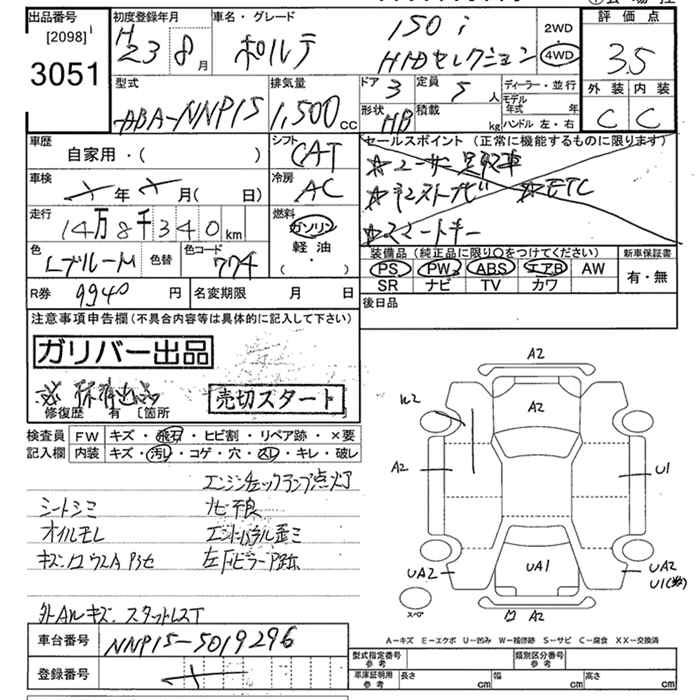 出品番号 初度登録年月 車名・グレード 150i 2WD 評価点
[2098] H23 8月 ポルテ HIDセレクション 4WD 3.5
3051 型式 排気量 ドア 3 定員 5人 ディーラー・並行 外装 内装
ABA-NNP15 1,500cc 形状 HB 積載 kg モデル年式 年 C C
ハンドル 左・右
車歴 シフト セールスポイント (正常に機能するものに限ります)
自家用・( ) CAT ☆ユーザー買取車
車検 年 月( 日) 冷房 AC ☆ETC
走行 14万8千340km 燃料 ガソリン ☆スマートキー
軽油 ( ・ )
色 色替 色コード 774 装備品 (純正品に限り○をつけてください) 新車保証書
PS PW ABS エアB AW 有・無
SR ナビ TV カワ
R券 9940円 名変期限 月 日 後日品
注意事項申告欄(不具合内容等は具体的に記入して下さい)
ガリバー出品
売切スタート
修復歴 有 [箇所 ]
検査員 FW キズ・飛石・ヒビ割・リペア跡・×要
記入欄 内装 キズ・汚レ・コゲ・穴・スレ・キレ・破レ
エンジンチェックランプ点灯
シートシミ ナビ不良
オイルモレ
外AWキズ、スタットレスT
A2
A2
W2
A2 U1
UA2 UA1 UA2
U1
スペア A2
A-キズ E-エクボ U-凹み W-補修跡 S-サビ C-腐食 XX-交換済
車台番号 NNP15-5019296
登録番号
型式指定番号 参考 類別区分番号 参考
車庫証明用 参考 長さ cm 幅 cm 高さ cm